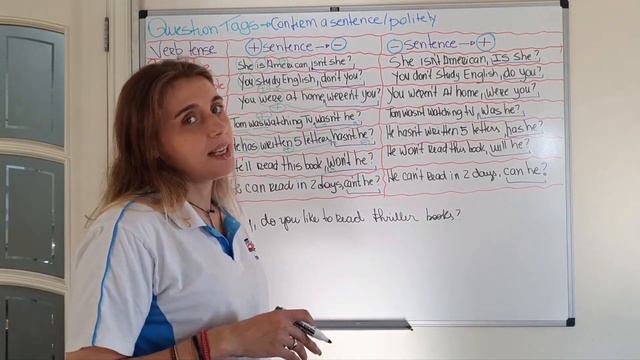 Question Tags → Confirm a sentence/politely
Verb tense + sentence → - - sentence → +
She is American, isn't she? She isn't American, Is she?
You study English, don't you? You don't study English, do you?
You were at home, weren't you? You weren't at home, were you?
Tom was watching tv, wasn't he? Tom wasn't watching tv, was he?
He has written 5 letters, hasn't he? He hasn't written 5 letters, has he?
read this book, won't he? He won't read this book, will he?
can read in 2 days, can't he? He can't read in 2 days, can he?
, do you like to read thriller books?